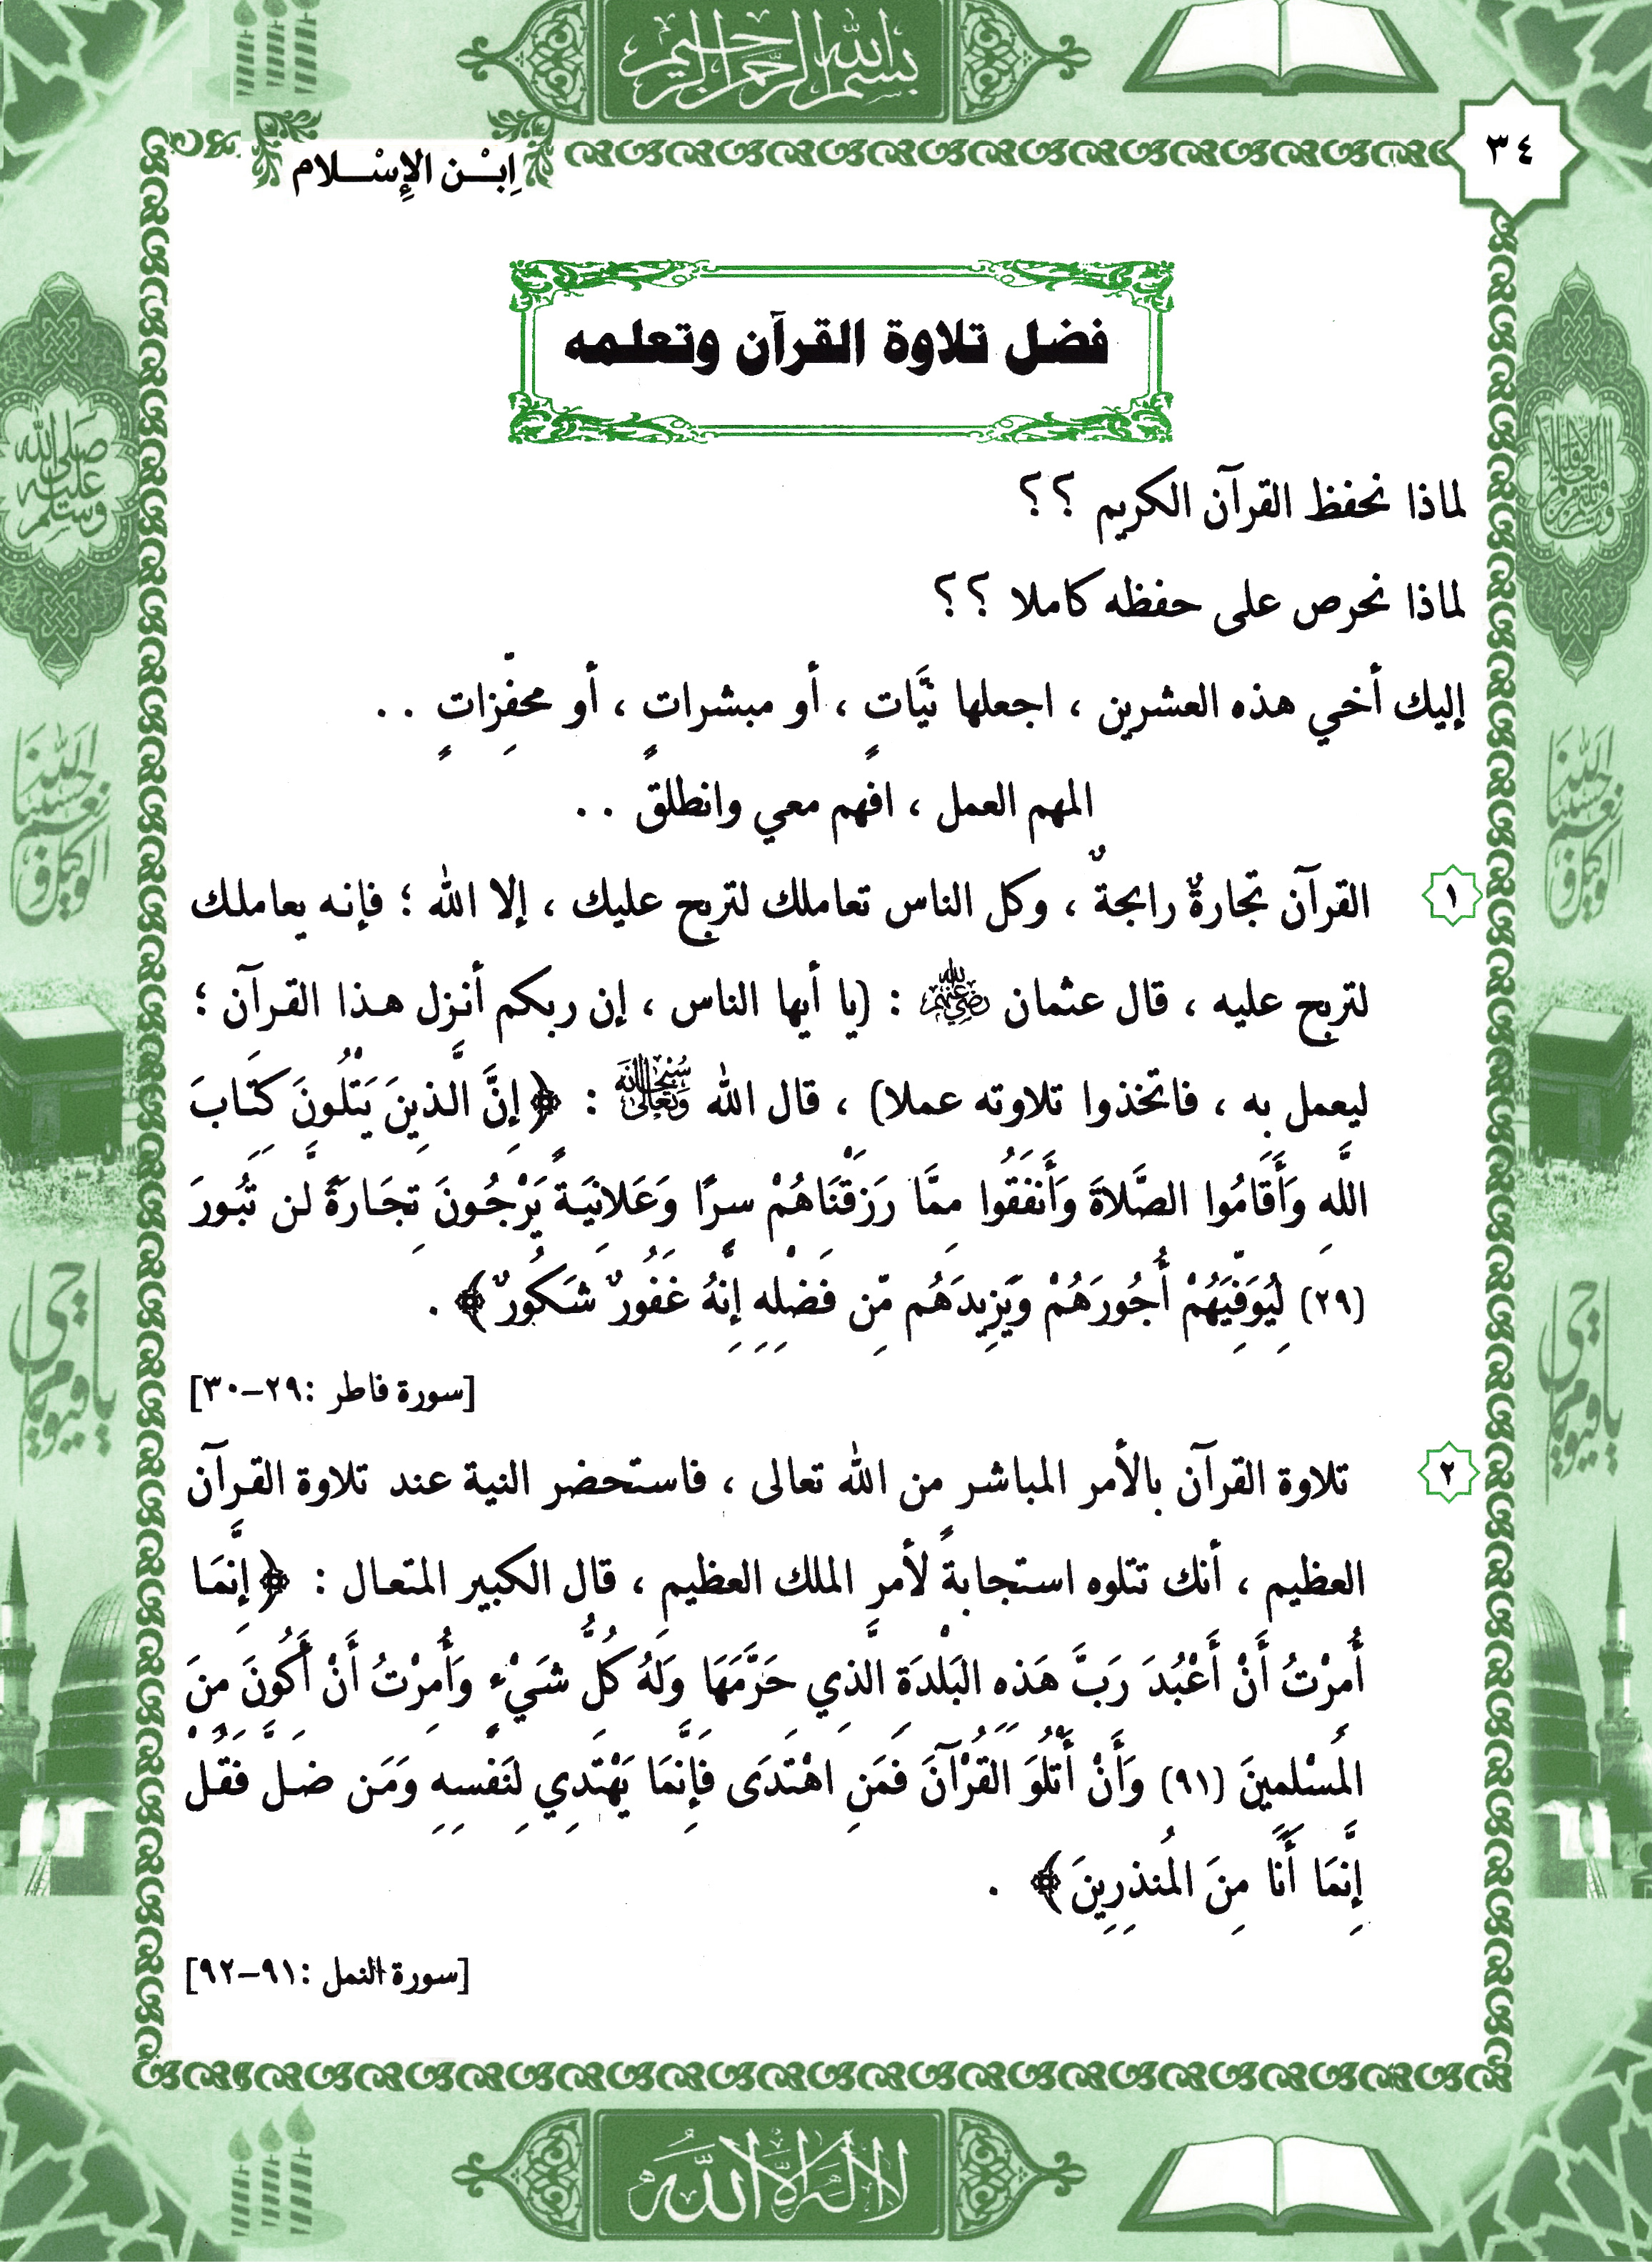 بسم الله الرحمن الرحيم
٣٤
اِبْـن الإِسْـلام
فضل تلاوة القرآن وتعلمه
لماذا نحفظ القرآن الكريم ؟؟
لماذا نحرص على حفظه كاملا ؟؟
إليك أخي هذه العشرين ، اجعلها نيَّاتٍ ، أو مبشراتٍ ، أو محفِّزاتٍ . .
المهم العمل ، افهم معي وانطلق . .
١ القرآن تجارةٌ رابحةٌ ، وكل الناس تعاملك لتربح عليك ، إلا الله ؛ فإنه يعاملك
لتربح عليه ، قال عثمان رضي الله عنه : (يا أيها الناس ، إن ربكم أنزل هذا القرآن ؛
ليعمل به ، فاتخذوا تلاوته عملا) ، قال الله سبحانه وتعالى : ﴿إِنَّ الَّذِينَ يَتْلُونَ كِتَابَ
اللَّهِ وَأَقَامُوا الصَّلاةَ وَأَنفَقُوا مِمَّا رَزَقْنَاهُمْ سِرًّا وَعَلانِيَةً يَرْجُونَ تِجَارَةً لَّن تَبُورَ
(٢٩) لِيُوَفِّيَهُمْ أُجُورَهُمْ وَيَزِيدَهُم مِّن فَضْلِهِ إِنَّهُ غَفُورٌ شَكُورٌ﴾ .
[سورة فاطر :٢٩-٣٠]
٢ تلاوة القرآن بالأمر المباشر من الله تعالى ، فاستحضر النية عند تلاوة القرآن
العظيم ، أنك تتلوه استجابةً لأمرِ الملك العظيم ، قال الكبير المتعال : ﴿إِنَّمَا
أُمِرْتُ أَنْ أَعْبُدَ رَبَّ هَذِهِ البَلْدَةِ الَّذِي حَرَّمَهَا وَلَهُ كُلُّ شَيْءٍ وَأُمِرْتُ أَنْ أَكُونَ مِنَ
المُسْلِمِينَ (٩١) وَأَنْ أَتْلُوَ القُرْآنَ فَمَنِ اهْتَدَى فَإِنَّمَا يَهْتَدِي لِنَفْسِهِ وَمَن ضَلَّ فَقُلْ
إِنَّمَا أَنَا مِنَ المُنذِرِينَ﴾ .
[سورة النمل :٩١-٩٢]
لا اله الا الله
صلى الله عليه وسلم
حسبنا الله ونعم الوكيل
حسبنا الله ونعم الوكيل
يا حي يا قيوم
يا حي يا قيوم